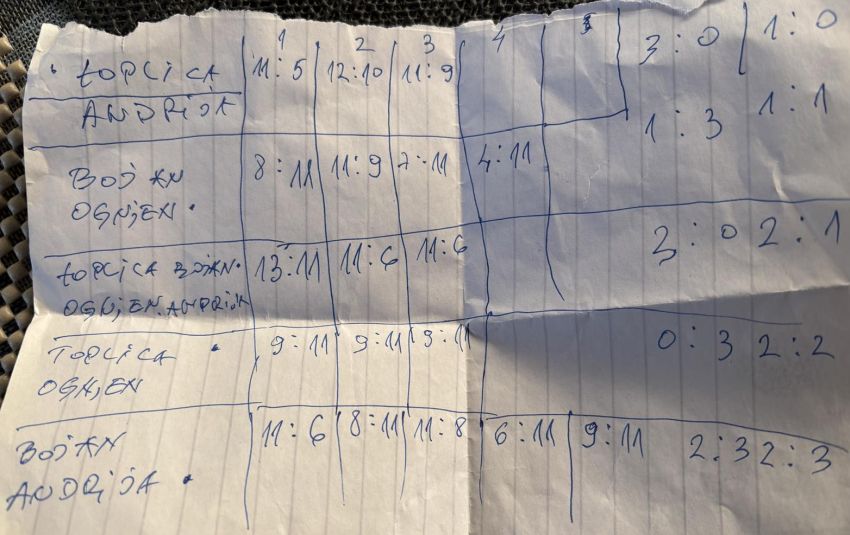 1 2 3 4 5
TOPLICA 11:5 12:10 11:9 3:0 1:0
ANDRIJA
BOJAN 8:11 11:9 7:11 4:11 1:3 1:1
OGNJEN
TOPLICA BOJAN 13:11 11:6 11:6 3:0 2:1
OGNJEN ANDRIJA
TOPLICA 9:11 9:11 9:11 0:3 2:2
OGNJEN
BOJAN 11:6 8:11 11:8 6:11 9:11 2:3 2:3
ANDRIJA